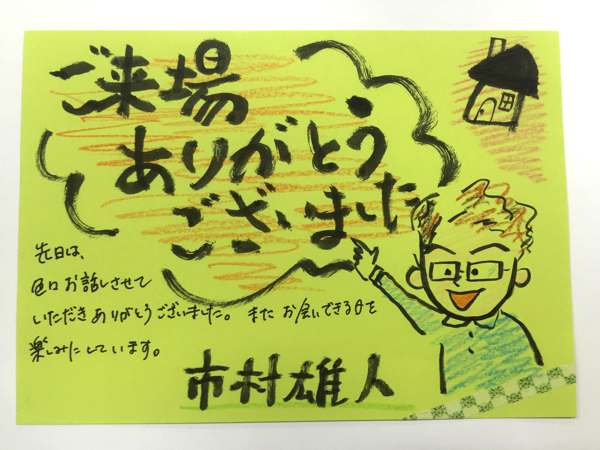 ご来場
ありがとう
ございました
先日は、
色々お話しさせて
いただきありがとうございました。またお会いできる日を
楽しみにしています。
市村雄人